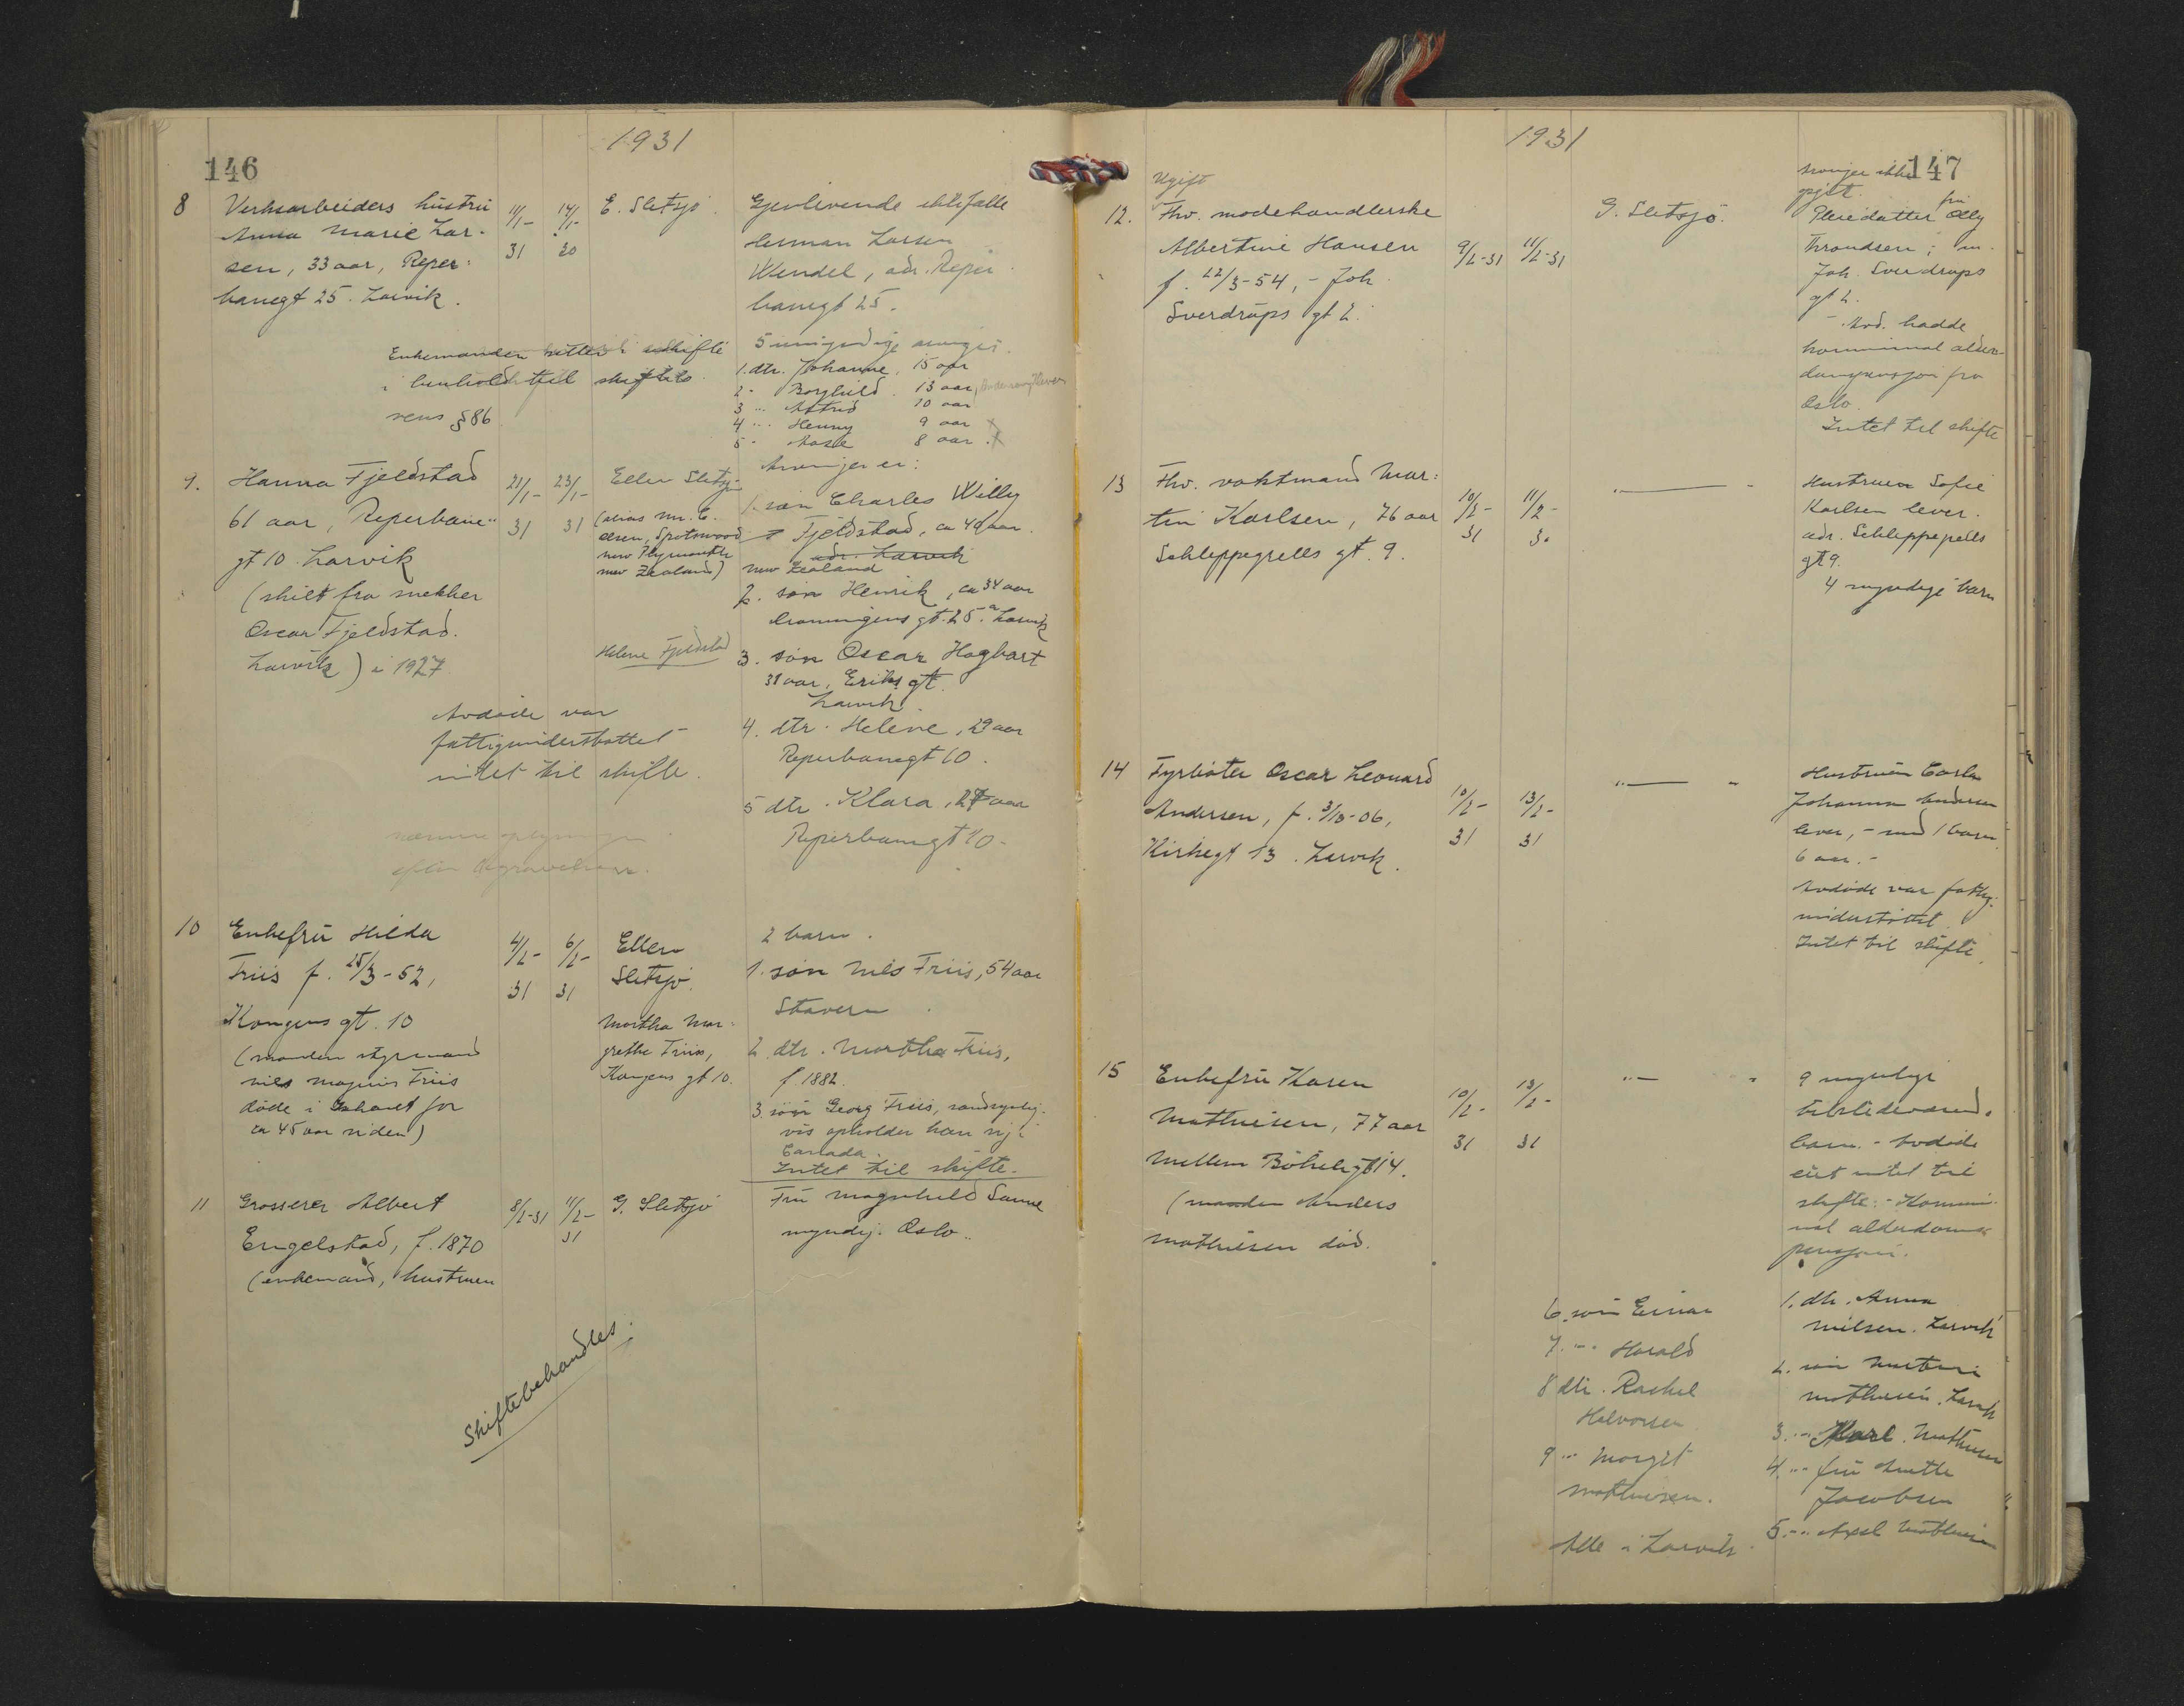 146
1931
8 Verksarbeiders hustru 11/1- 14/1- E. Sletsjø. Gjenlevende ektefælle
Anna Marie Lar- 31 30 Herman Larsen
sen, 33 aar, Reper- Wendel, adr. Reper-
banegt 25. Larvik. banegt 25.
Enkemanden sitter i uskifte 5 umyndige arvinger.
i henhold til skiftelo- 1. dtr. Johanne, 15 aar
vens § 86 2 - Borghild 13 aar,
3 " Astrid 10 aar
4 " Henny 9 aar
5 - Aase 8 aar
9. Hanna Fjeldstad 21/1- 23/1- Ellen Sletsjø Arvinger er:
61 aar, Reperbane- 31 31 (alias Mr. C. 1. søn Charles Willy
gt 10 Larvik Spotswood Fjeldstad, ca 40 aar.
New Plymouth adr. Larvik
New Zealand) New Zealand
(skilt fra snekker 2. søn Henrik, ca 34 aar
Oscar Fjeldstad. Dronningens gt. 25 a Larvik
Larvik) i 1927 Helene Fjeldstad 3. søn Oscar Hagbart
31 aar, Eriks gt.
Larvik.
Avdøde var 4. dtr. Helene, 29 aar
fattigunderstøttet Reperbanegt 10.
intet til skifte. 5 dtr. Klara, 27 aar
Reperbanegt 10-
efter begravelsen.
10 Enkefru Hilda 4/2- 6/2- Ellen 2 barn.
Friis f. 25/3-52, 31 31 Sletsjø. 1. søn Nils Friis, 54 aar
Kongens gt. 10 Martha Mar- Stavern
(manden styrmand grethe Friis, 2. dtr. Martha Friis,
Nils Magnus Friis Kongens gt 10. f. 1882.
døde i for 3. søn Georg Friis, sandsynlig-
ca 45 aar siden) vis opholder han sig i
Canada.
Intet til skifte.
11 Grosserer Albert 8/2-31 11/2-31 G. Sletsjø Fru Magnhild Sanne
Engelstad, f. 1870 myndig. Oslo..
(enkemand, hustruen
Skiftebehandles.
147
1931
Ugift arvinger ikke
gjet.
12. Fhv. modehandlerske 9/2-31 11/2-31 G. Sletsjø. Pleiedatter fru Olly
Albertine Hansen Throndsen, i
f. 22/3-54, - Joh. Joh. Sverdrups
Sverdrups gt 2. gt 2.
- Avd. hadde
kommunal alder-
dompensjon fra
Oslo.
Intet til skifte
13 Fhv. vaktmand Mar- 10/2- 11/2- " — " Hustruen Sofie
tin Karlsen, 76 aar 31 31 Karlsen lever.
Schleppegrells gt. 9. adr. Schleppegrells
gt 9.
4 myndige barn
14 Fyrbøter Oscar Leonard 10/2- 13/2- " — " Hustruen Carla
Andersen, f. 3/10-06, 31 31 Johanna Andersen
Kirkegt 13. Larvik. lever, - med 1 barn
6 aar. -
Avdøde var fattig-
understøttet.
Intet til skifte.
15 Enkefru Karen 10/2- 13/2- " — " 9 myndige
Mathiesen, 77 aar 31 31 tilstedeværende
Mellem Bøkeligt 14. barn. - Avdøde
(manden Anders eiet intet til
Mathiesen død. skifte. - Kommu-
nal alderdoms-
pensjon.
6. søn Einar 1. dtr. Anna
7. " Harald Nilsen. Larvik
8 dtr. Rachel 2. søn Martin
Halvorsen Mathiesen. Larvik
9 " Margit 3. " Karl Mathiesen
Mathiesen. 4. " fru Anette
Jacobsen "
Alle i Larvik. 5. " Axel Mathiesen